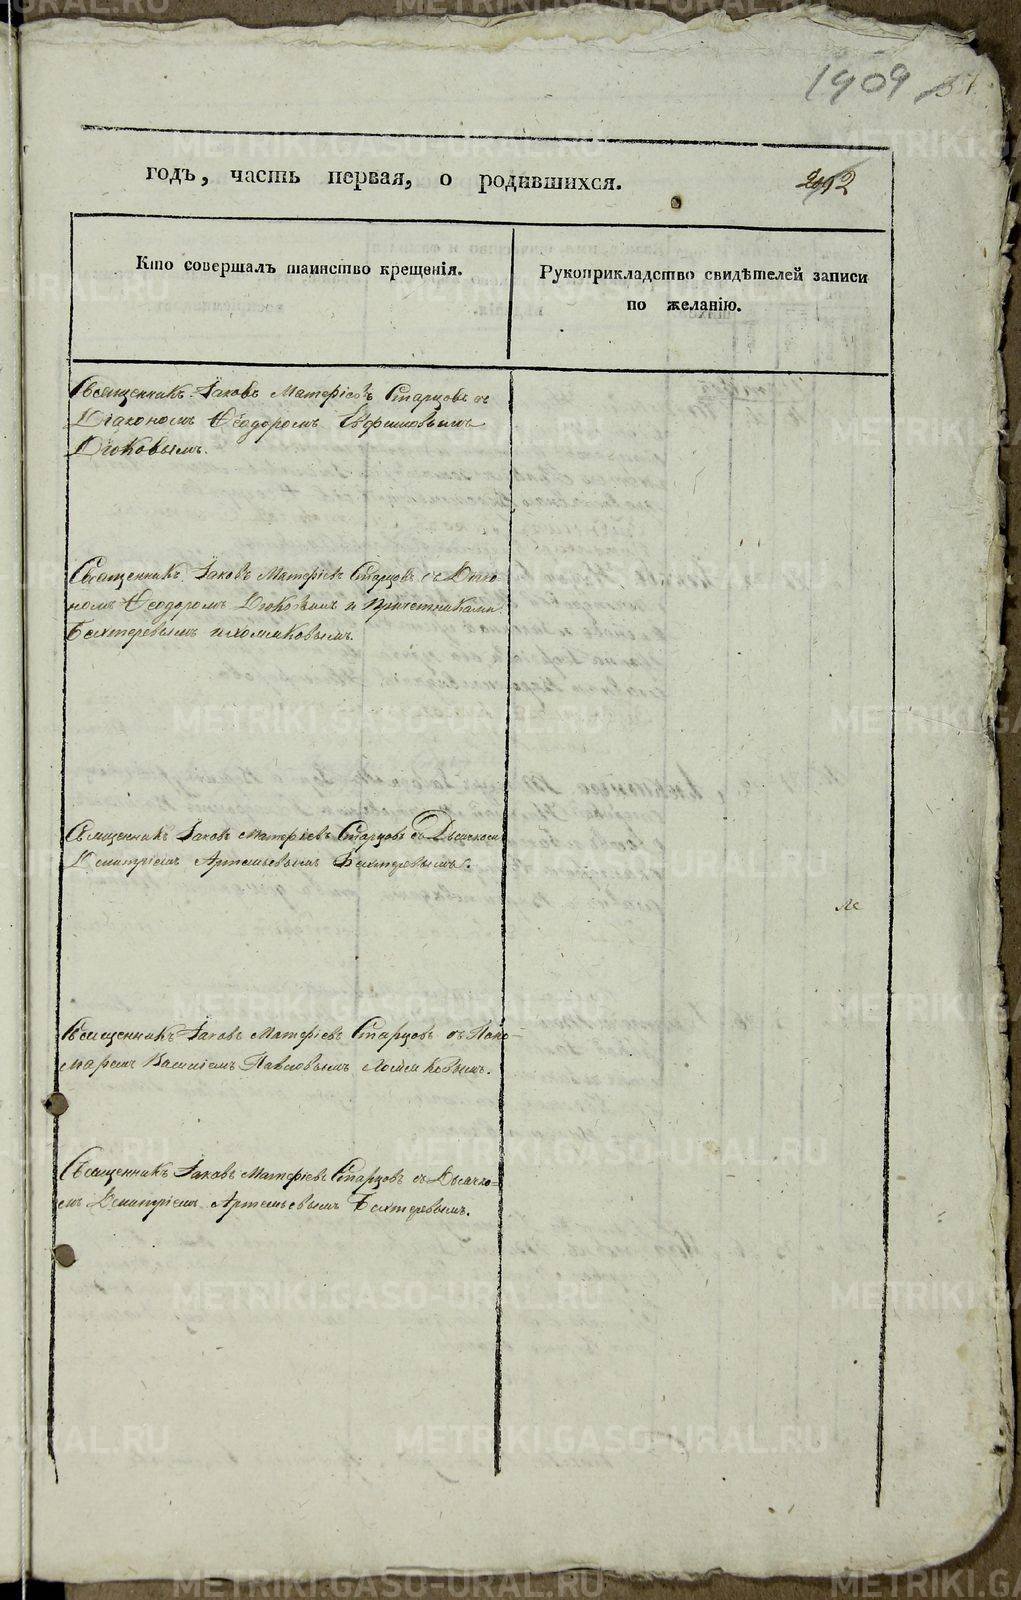 1909 37
годъ, часть первая, о родившихся.
Кто совершалъ таинство крещенія.
Рукоприкладство свидѣтелей записи
по желанію.
Священникъ Іаковъ Матѳіевъ Старцовъ съ
Діакономъ Ѳеодоромъ Евфимовымъ
Дюковымъ.
Священникъ Іаковъ Матѳіевъ Старцовъ съ Діако-
номъ Ѳеодоромъ Дюковымъ и Причетниками
Бехтеревымъ и Хомяковымъ.
Священникъ Іаковъ Матѳіевъ Старцовъ съ Дьячкомъ
Димитріемъ Артемьевымъ Бехтеревымъ.
Священникъ Іаковъ Матѳіевъ Старцовъ съ Поно-
маремъ Василіемъ Павловымъ Хомяковымъ.
Священникъ Іаковъ Матѳіевъ Старцовъ съ Дьячко-
мъ Димитріемъ Артемьевымъ Бехтеревымъ.
METRIKI.GASO-URAL.RU